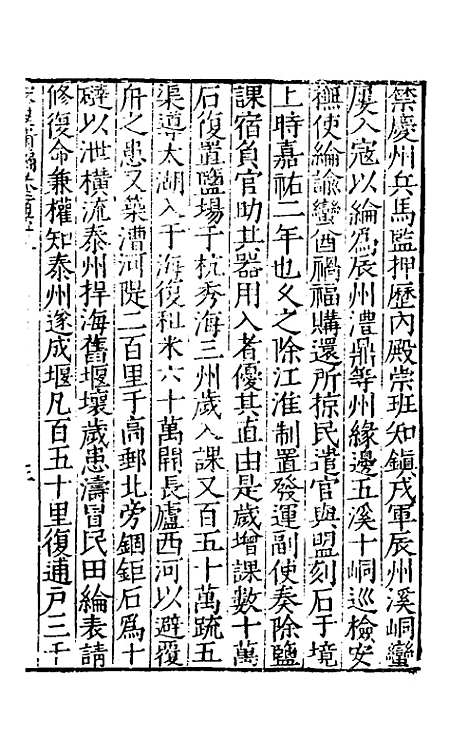 禁慶州兵馬監押歷內殿崇班知鎮戎軍辰州溪峒蠻
屢入寇以綸爲辰州澧鼎等州緣邊五溪十峒巡檢安
撫使綸諭蠻酋禍福購還所掠民遣官與盟刻石于境
上時嘉祐二年也乂之除江淮制置發運副使奏除鹽
課宿負官助其器用入者優其直由是歲增課數十萬
石復置鹽場于杭秀海三州歲入課又百五十萬疏五
渠導太湖入于海復租米六十萬開長蘆西河以避覆
舟之患又築漕河隄二百里于高郵北旁錮鉅石爲十
䃮以泄橫流泰州捍海舊堰壞歲患濤冒民田綸表請
修復命兼權知泰州遂成堰凡百五十里復逋戶三千